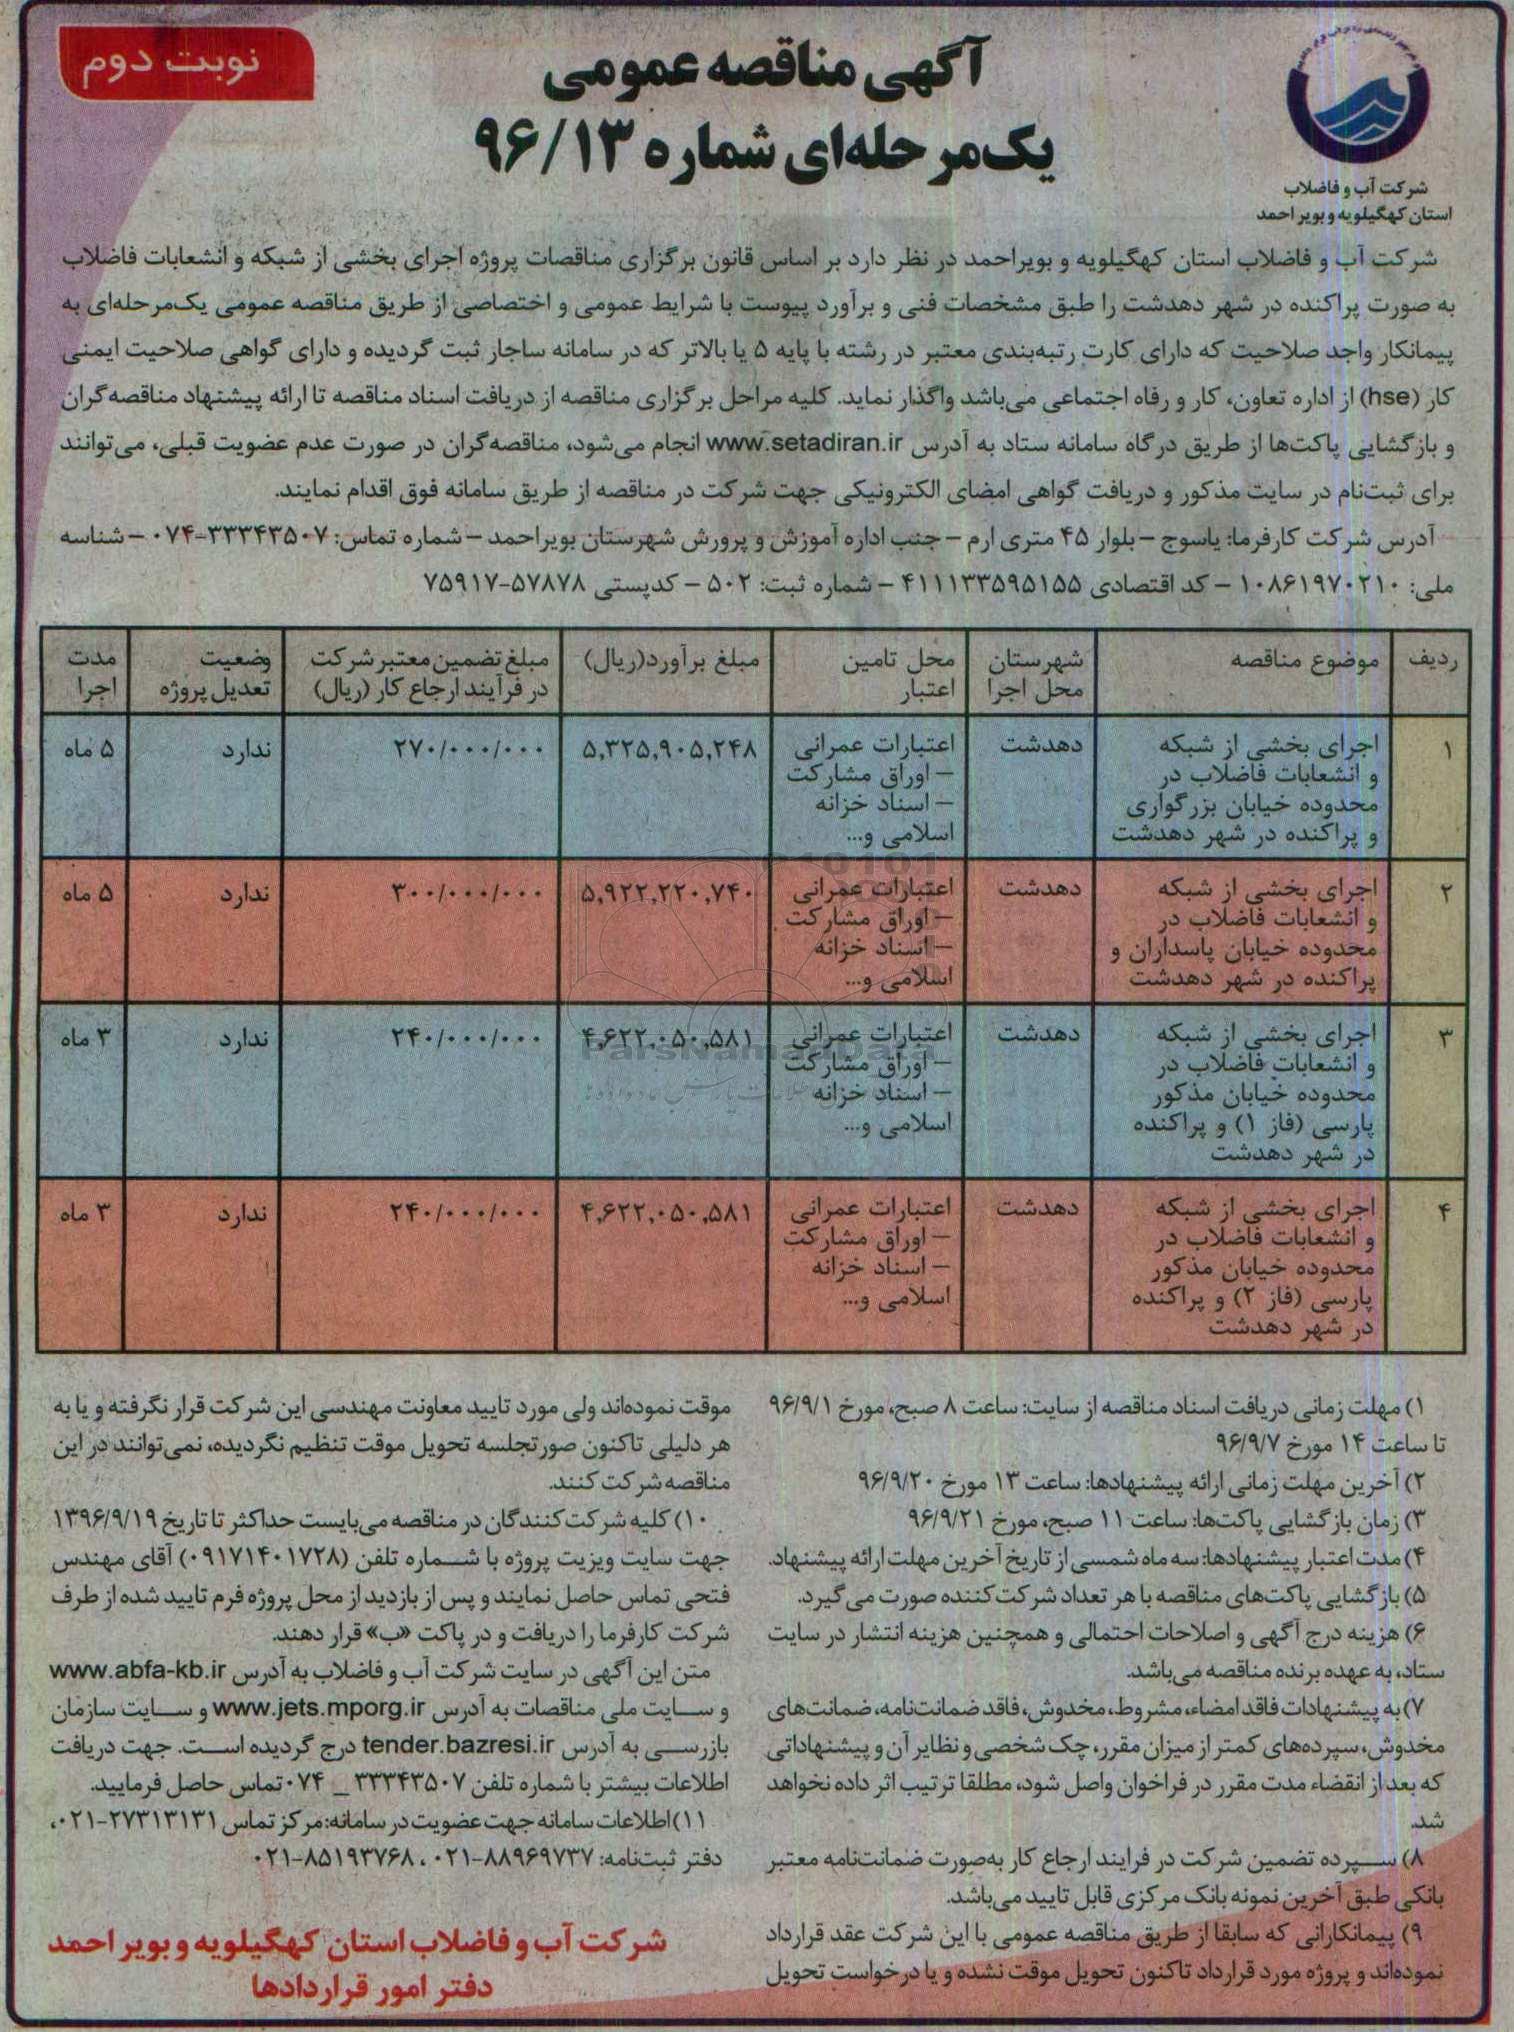 نوبت دوم
آگهی مناقصه عمومی
یک‌مرحله‌ای شماره ۹۶/۱۳
شرکت آب و فاضلاب
استان کهگیلویه و بویراحمد
شرکت آب و فاضلاب استان کهگیلویه و بویراحمد در نظر دارد بر اساس قانون برگزاری مناقصات پروژه اجرای بخشی از شبکه و انشعابات فاضلاب
به صورت پراکنده در شهر دهدشت را طبق مشخصات فنی و برآورد پیوست با شرایط عمومی و اختصاصی از طریق مناقصه عمومی یک‌مرحله‌ای به
پیمانکار واجد صلاحیت که دارای کارت رتبه‌بندی معتبر در رشته با پایه ۵ یا بالاتر که در سامانه ساجار ثبت گردیده و دارای گواهی صلاحیت ایمنی
کار (hse) از اداره تعاون، کار و رفاه اجتماعی می‌باشد واگذار نماید. کلیه مراحل برگزاری مناقصه از دریافت اسناد مناقصه تا ارائه پیشنهاد مناقصه‌گران
و بازگشایی پاکت‌ها از طریق درگاه سامانه ستاد به آدرس www.setadiran.ir انجام می‌شود، مناقصه‌گران در صورت عدم عضویت قبلی، می‌توانند
برای ثبت‌نام در سایت مذکور و دریافت گواهی امضای الکترونیکی جهت شرکت در مناقصه از طریق سامانه فوق اقدام نمایند.
آدرس شرکت کارفرما: یاسوج – بلوار ۴۵ متری ارم – جنب اداره آموزش و پرورش شهرستان بویراحمد – شماره تماس: ۳۳۳۴۳۵۰۷-۰۷۴ – شناسه
ملی: ۱۰۸۶۱۹۷۰۲۱۰ – کد اقتصادی ۴۱۱۱۳۳۵۹۵۱۵۵ – شماره ثبت: ۵۰۲ – کدپستی ۵۷۸۷۸-۷۵۹۱۷
ردیف
موضوع مناقصه
شهرستان
محل اجرا
محل تامین
اعتبار
مبلغ برآورد(ریال)
مبلغ تضمین معتبر شرکت
در فرآیند ارجاع کار (ریال)
وضعیت
تعدیل پروژه
مدت
اجرا
۱
اجرای بخشی از شبکه
و انشعابات فاضلاب در
محدوده خیابان بزرگواری
و پراکنده در شهر دهدشت
دهدشت
اعتبارات عمرانی
– اوراق مشارکت
– اسناد خزانه
اسلامی و...
۵,۳۲۵,۹۰۵,۲۴۸
۲۷۰/۰۰۰/۰۰۰
ندارد
۵ ماه
۲
اجرای بخشی از شبکه
و انشعابات فاضلاب در
محدوده خیابان پاسداران و
پراکنده در شهر دهدشت
دهدشت
اعتبارات عمرانی
– اوراق مشارکت
– اسناد خزانه
اسلامی و...
۵,۹۲۲,۲۲۰,۷۴۰
۳۰۰/۰۰۰/۰۰۰
ندارد
۵ ماه
۳
اجرای بخشی از شبکه
و انشعابات فاضلاب در
محدوده خیابان مذکور
پارسی (فاز ۱) و پراکنده
در شهر دهدشت
دهدشت
اعتبارات عمرانی
– اوراق مشارکت
– اسناد خزانه
اسلامی و...
۴,۶۲۲,۰۵۰,۵۸۱
۲۴۰/۰۰۰/۰۰۰
ندارد
۳ ماه
ParsNamadData
۴
اجرای بخشی از شبکه
و انشعابات فاضلاب در
محدوده خیابان مذکور
پارسی (فاز ۲) و پراکنده
در شهر دهدشت
دهدشت
اعتبارات عمرانی
– اوراق مشارکت
– اسناد خزانه
اسلامی و...
۴,۶۲۲,۰۵۰,۵۸۱
۲۴۰/۰۰۰/۰۰۰
ندارد
۳ ماه
۱) مهلت زمانی دریافت اسناد مناقصه از سایت: ساعت ۸ صبح، مورخ ۹۶/۹/۱
تا ساعت ۱۴ مورخ ۹۶/۹/۷
۲) آخرین مهلت زمانی ارائه پیشنهادها: ساعت ۱۳ مورخ ۹۶/۹/۲۰
۳) زمان بازگشایی پاکت‌ها: ساعت ۱۱ صبح، مورخ ۹۶/۹/۲۱
۴) مدت اعتبار پیشنهادها: سه ماه شمسی از تاریخ آخرین مهلت ارائه پیشنهاد.
۵) بازگشایی پاکت‌های مناقصه با هر تعداد شرکت‌کننده صورت می‌گیرد.
۶) هزینه درج آگهی و اصلاحات احتمالی و همچنین هزینه انتشار در سایت
ستاد، به عهده برنده مناقصه می‌باشد.
۷) به پیشنهادات فاقد امضاء، مشروط، مخدوش، فاقد ضمانت‌نامه، ضمانت‌های
مخدوش، سپرده‌های کمتر از میزان مقرر، چک شخصی و نظایر آن و پیشنهاداتی
که بعد از انقضاء مدت مقرر در فراخوان واصل شود، مطلقا ترتیب اثر داده نخواهد
شد.
۸) سپرده تضمین شرکت در فرایند ارجاع کار به‌صورت ضمانت‌نامه معتبر
بانکی طبق آخرین نمونه بانک مرکزی قابل تایید می‌باشد.
۹) پیمانکارانی که سابقا از طریق مناقصه عمومی با این شرکت عقد قرارداد
نموده‌اند و پروژه مورد قرارداد تاکنون تحویل موقت نشده و یا درخواست تحویل
موقت نموده‌اند ولی مورد تایید معاونت مهندسی این شرکت قرار نگرفته و یا به
هر دلیلی تاکنون صورتجلسه تحویل موقت تنظیم نگردیده، نمی‌توانند در این
مناقصه شرکت کنند.
۱۰) کلیه شرکت‌کنندگان در مناقصه می‌بایست حداکثر تا تاریخ ۱۳۹۶/۹/۱۹
جهت سایت ویزیت پروژه با شماره تلفن (۰۹۱۷۱۴۰۱۷۲۸) آقای مهندس
فتحی تماس حاصل نمایند و پس از بازدید از محل پروژه فرم تایید شده از طرف
شرکت کارفرما را دریافت و در پاکت «ب» قرار دهند.
متن این آگهی در سایت شرکت آب و فاضلاب به آدرس www.abfa-kb.ir
و سایت ملی مناقصات به آدرس www.jets.mporg.ir و سایت سازمان
بازرسی به آدرس tender.bazresi.ir درج گردیده است. جهت دریافت
اطلاعات بیشتر با شماره تلفن ۳۳۳۴۳۵۰۷ _ ۰۷۴ تماس حاصل فرمایید.
۱۱) اطلاعات سامانه جهت عضویت در سامانه: مرکز تماس ۲۷۳۱۳۱۳۱-۰۲۱،
دفتر ثبت‌نامه: ۸۸۹۶۹۷۳۷-۰۲۱ ، ۸۵۱۹۳۷۶۸-۰۲۱
شرکت آب و فاضلاب استان کهگیلویه و بویراحمد
دفتر امور قراردادها